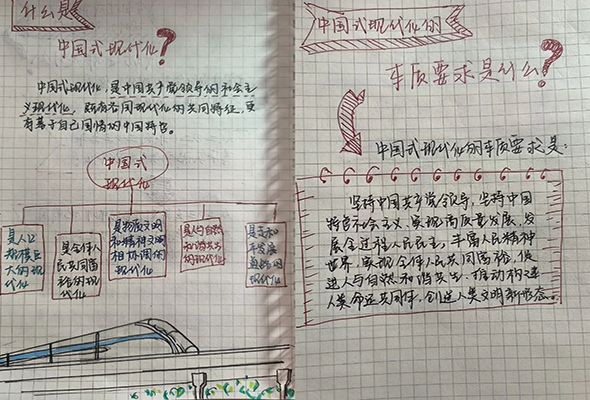 什么是
中国式现代化?
中国式现代化，是中国共产党领导的社会主
义现代化，既有各国现代化的共同特征，更
有基于自己国情的中国特色。
中国式
现代化
是人口
规模巨
大的现
代化
是全体人
民共同富
裕的现
代化
是物质文明
和精神文明
相协调的
现代化
是人与自然
和谐共生
的现代化
是走和
平发展
道路的现
代化
中国式现代化的
本质要求是什么?
中国式现代化的本质要求是:
坚持中国共产党领导，坚持中国
特色社会主义，实现高质量发展，发
展全过程人民民主，丰富人民精神
世界，实现全体人民共同富裕，促
进人与自然和谐共生，推动构建
人类命运共同体，创造人类文明新形态。